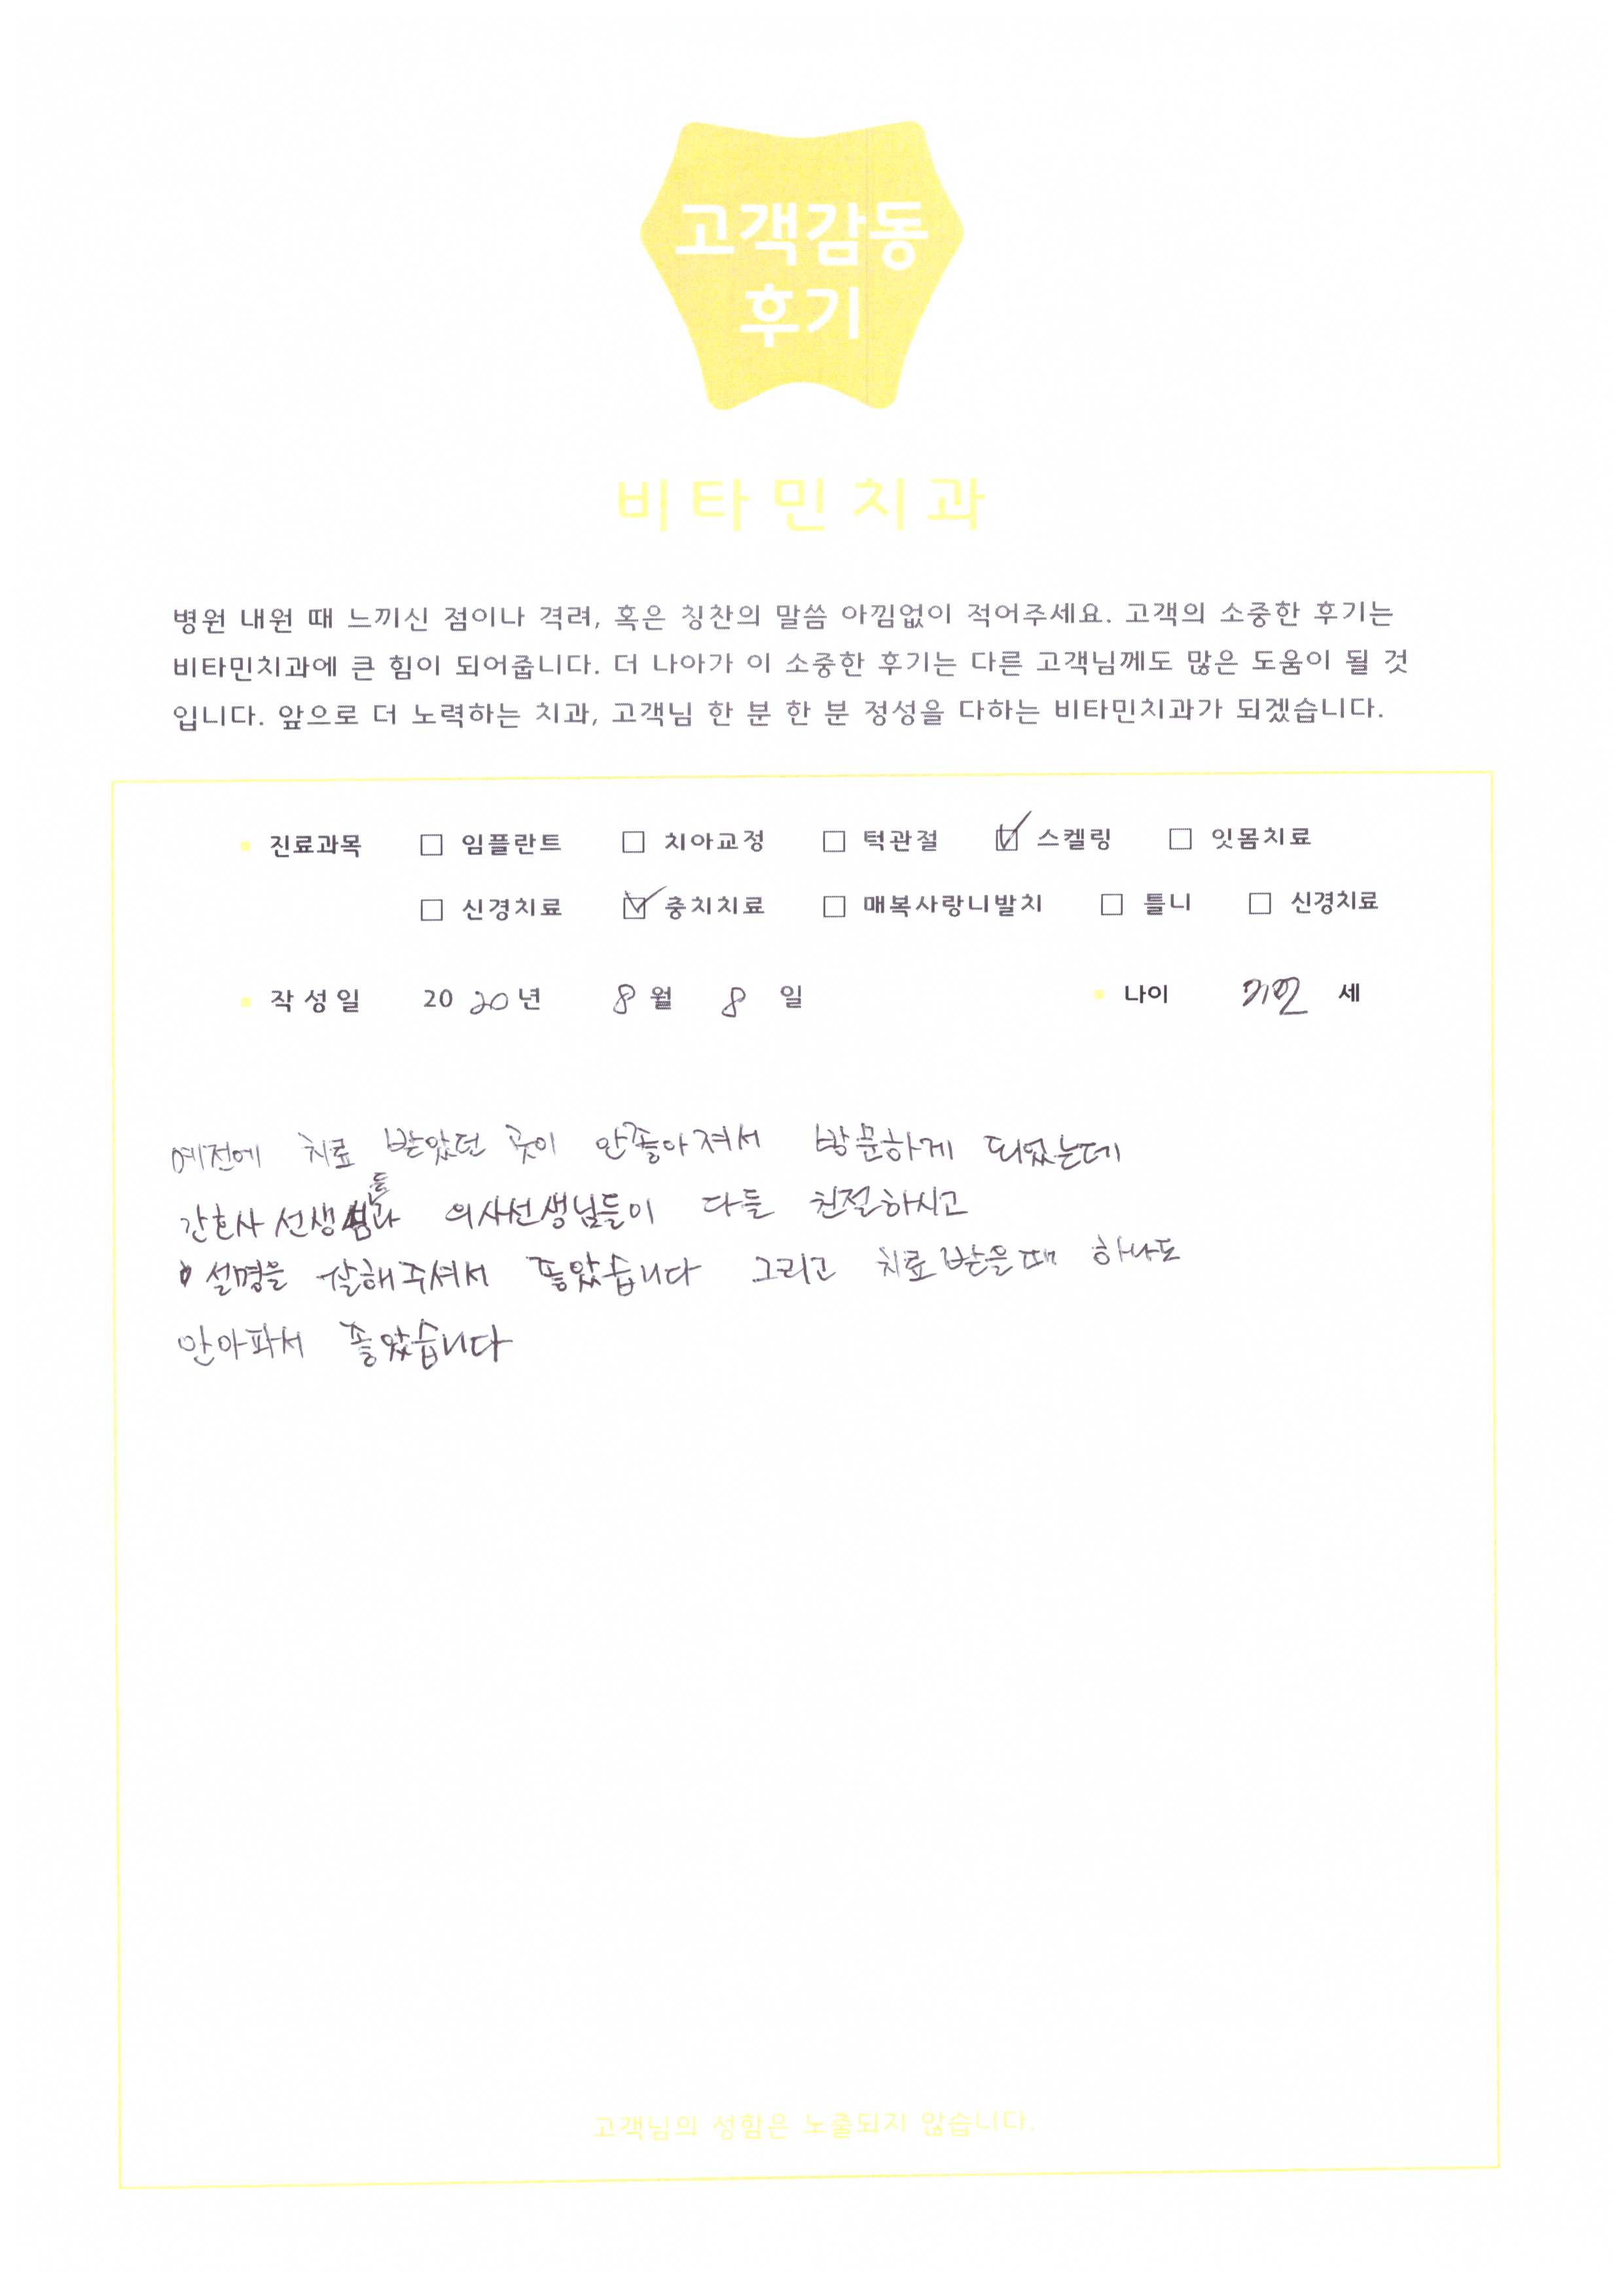 고객감동
후기
비타민치과
병원 내원 때 느끼신 점이나 격려, 혹은 칭찬의 말씀 아낌없이 적어주세요. 고객의 소중한 후기는
비타민치과에 큰 힘이 되어줍니다. 더 나아가 이 소중한 후기는 다른 고객님께도 많은 도움이 될 것
입니다. 앞으로 더 노력하는 치과, 고객님 한 분 한 분 정성을 다하는 비타민치과가 되겠습니다.
진료과목 임플란트 치아교정 턱관절 스켈링 잇몸치료
신경치료 충치치료 매복사랑니발치 틀니 신경치료
작성일 2020년 8월 8일 나이 세
예전에 치료 받았던 곳이 안좋아져서 방문하게 되었는데
간호사 선생님들과 의사선생님들이 다들 친절하시고
설명을 잘해주셔서 좋았습니다 그리고 치료받을때 하나도
안아파서 좋았습니다
고객님의 성함은 노출되지 않습니다.